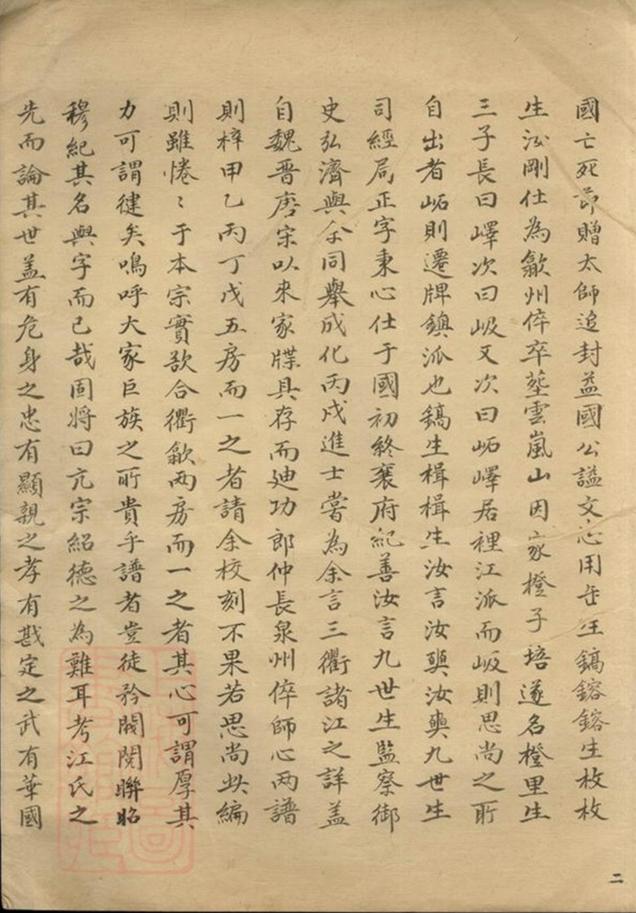 國亡死節贈太師追封益國公謚文忠用缶王鎬鎔鎔生枚枚
生汯剛仕為歙州倅卒塟雲嵐山因家橙子培遂名橙里生
三子長曰嶧次曰岋又次曰岮嶧居裡江派而岋則思尚之所
自出者岮則遷牌鎮派也鎬生楫楫生汝言汝奭汝奭九世生
司經局正字秉心仕于國初終襄府紀善汝言九世生監察御
史弘濟與余同舉成化丙戌進士嘗為余言三衢諸江之詳蓋
自魏晋唐宋以來家牒具存而廸功郎仲長泉州倅師心兩譜
則梓甲乙丙丁戊五房而一之者請余校刻不果若思尚此編
則雖惓〻于本宗實欲合衢歙兩房而一之者其心可謂厚其
力可謂健矣嗚呼大家巨族之所貴乎譜者豈徒矜閥閱聨昭
穆紀其名與字而已哉固將曰亢宗紹德之為難耳考江氏之
先而論其世盖有危身之忠有顯親之孝有戡定之武有華國
二